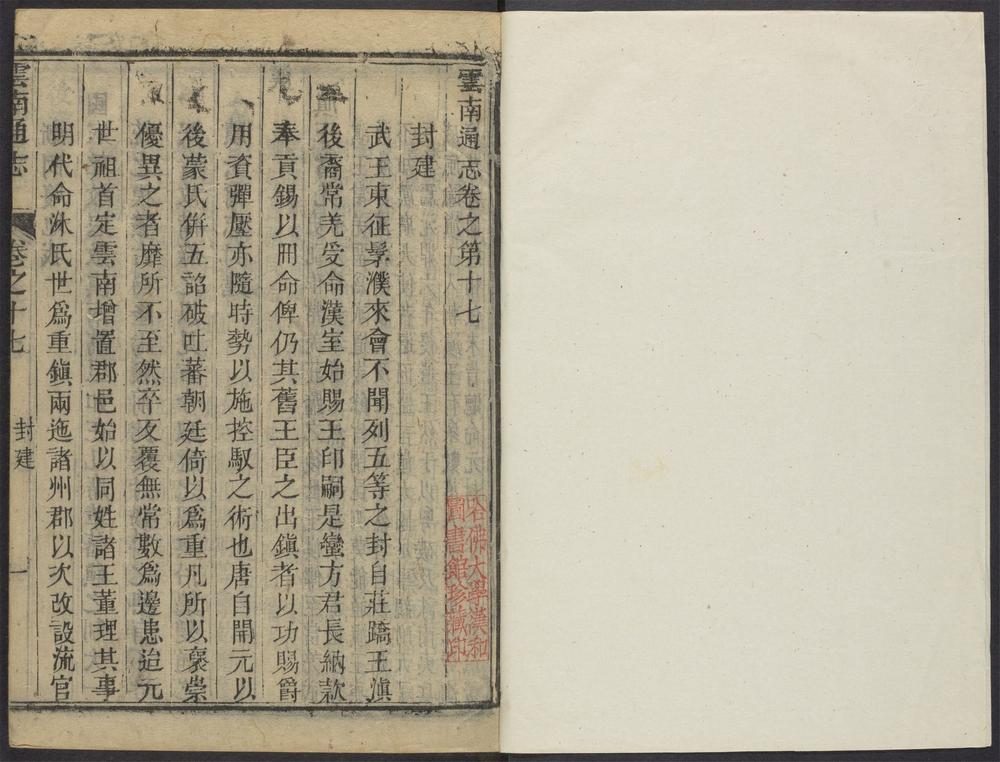 雲南通志卷之第十七
封建
武王東征髳濮來會不聞列五等之封自莊蹻王滇
後裔常羌受命漢室始賜王印嗣是蠻方君長納款
奉貢錫以冊命俾仍其舊王臣之出鎮者以功賜爵
用資彈壓亦隨時勢以施控馭之術也唐自開元以
後蒙氏併五詔破吐蕃朝廷倚以爲重凡所以褒崇
優異之者靡所不至然卒反覆無常數爲邊患迨元
世祖首定雲南增置郡邑始以同姓諸王董理其事
明代命沐氏世爲重鎮兩迤諸州郡以次改設流官
雲南通志
卷之十七
封建
一
哈佛大學漢和
圖書館珍藏印